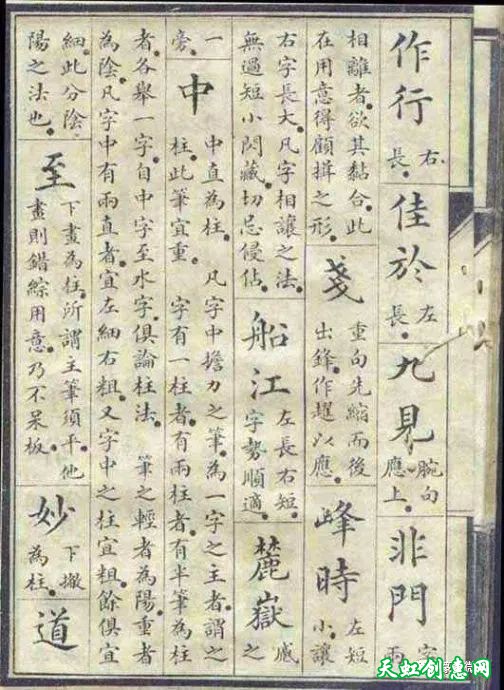 作行
右
長。
佳於
左
長。
九見
腕向
應上。
非門
字
兩
相離者欲其黏合。此
在用意得顧揖之形。
戔
重向先縮而後
出鋒作趯以應。
峰時
左短
小讓
右字長大。凡字相讓之法。
無過短小閃藏。切忌侵佔。
船江
左長右短。
字勢順適。
麓嶽
之
一
旁。
中
中直為柱。凡字中擔力之筆為一字之主者。謂之
柱。此筆宜重。字有一柱者。有兩柱者。有半筆為柱
者。各舉一字。自中字至水字。俱論柱法。筆之輕者為陽。重者
為陰。凡字中有兩直者。宜左細右粗。又字中之柱宜粗。餘俱宜
細。此分陰
陽之法也。
至
下畫為柱。所謂主筆須平。他
畫則錯綜用意。乃不呆板。
妙
下撇
為柱。
道
天虹创意网